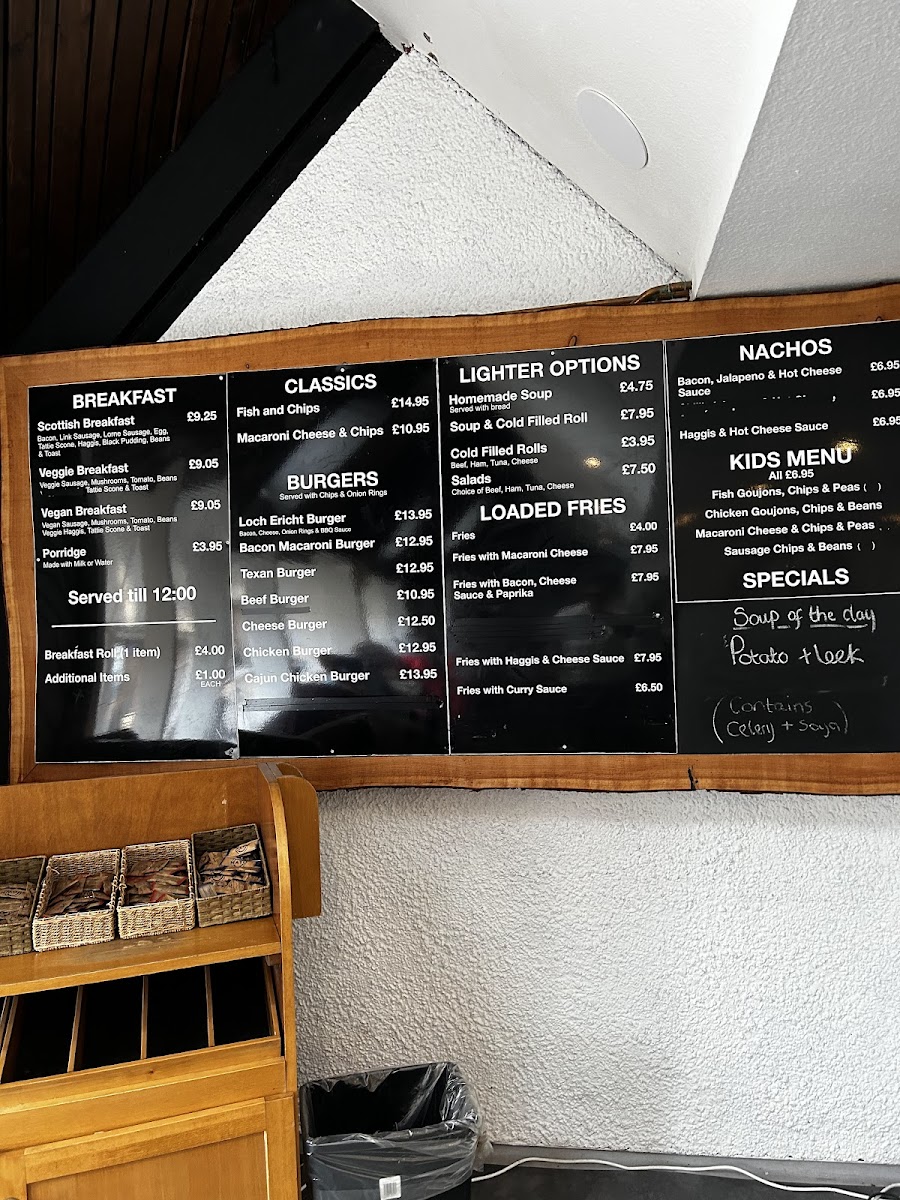 BREAKFAST
Scottish Breakfast £9.25
Bacon, Link Sausage, Lorne Sausage, Egg,
Tattie Scone, Haggis, Black Pudding, Beans
& Toast
Veggie Breakfast £9.05
Veggie Sausage, Mushrooms, Tomato, Beans
Tattie Scone & Toast
Vegan Breakfast £9.05
Vegan Sausage, Mushrooms, Tomato, Beans
Veggie Haggis, Tattie Scone & Toast
Porridge £3.95
Made with Milk or Water
Served till 12:00
Breakfast Roll (1 item) £4.00
Additional Items £1.00
EACH
CLASSICS
Fish and Chips £14.95
Macaroni Cheese & Chips £10.95
BURGERS
Served with Chips & Onion Rings
Loch Ericht Burger £13.95
Bacon, Cheese, Onion Rings & BBQ Sauce
Bacon Macaroni Burger £12.95
Texan Burger £12.95
Beef Burger £10.95
Cheese Burger £12.50
Chicken Burger £12.95
Cajun Chicken Burger £13.95
LIGHTER OPTIONS
Homemade Soup £4.75
Served with bread
Soup & Cold Filled Roll £7.95
Cold Filled Rolls £3.95
Beef, Ham, Tuna, Cheese
Salads £7.50
Choice of Beef, Ham, Tuna, Cheese
LOADED FRIES
Fries £4.00
Fries with Macaroni Cheese £7.95
Fries with Bacon, Cheese £7.95
Sauce & Paprika
Fries with Haggis & Cheese Sauce £7.95
Fries with Curry Sauce £6.50
NACHOS
Bacon, Jalapeno & Hot Cheese £6.95
Sauce
£6.95
Haggis & Hot Cheese Sauce £6.95
KIDS MENU
All £6.95
Fish Goujons, Chips & Peas ( )
Chicken Goujons, Chips & Beans
Macaroni Cheese & Chips & Peas
Sausage Chips & Beans ( )
SPECIALS
Soup of the day
Potato + leek
(Contains
Celery + Soya)